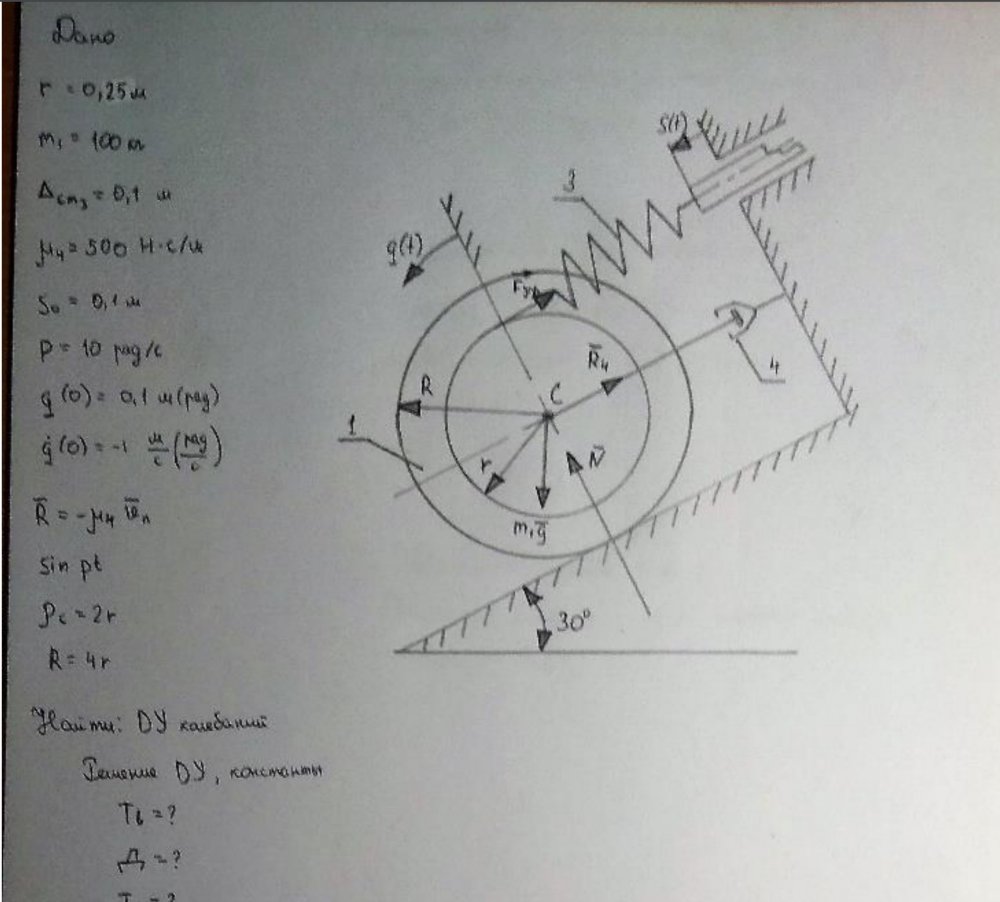 Дано
r = 0,25 м
m₁ = 100 кг
Δcm₃ = 0,1 м
μ₄ = 500 Н·с/м
S₀ = 0,1 м
p = 10 рад/с
q(0) = 0,1 м(рад)
q̇(0) = -1 м/с (рад/с)
R̄ = -μ₄ v̄п
sin pt
ρc = 2r
R = 4r
Найти: ДУ колебаний
Решение ДУ, константы
Tb = ?
Д = ?
S(t)
3
q(t)
Fу
R̄₄
4
R
C
1
r
N̄
m₁ḡ
30°